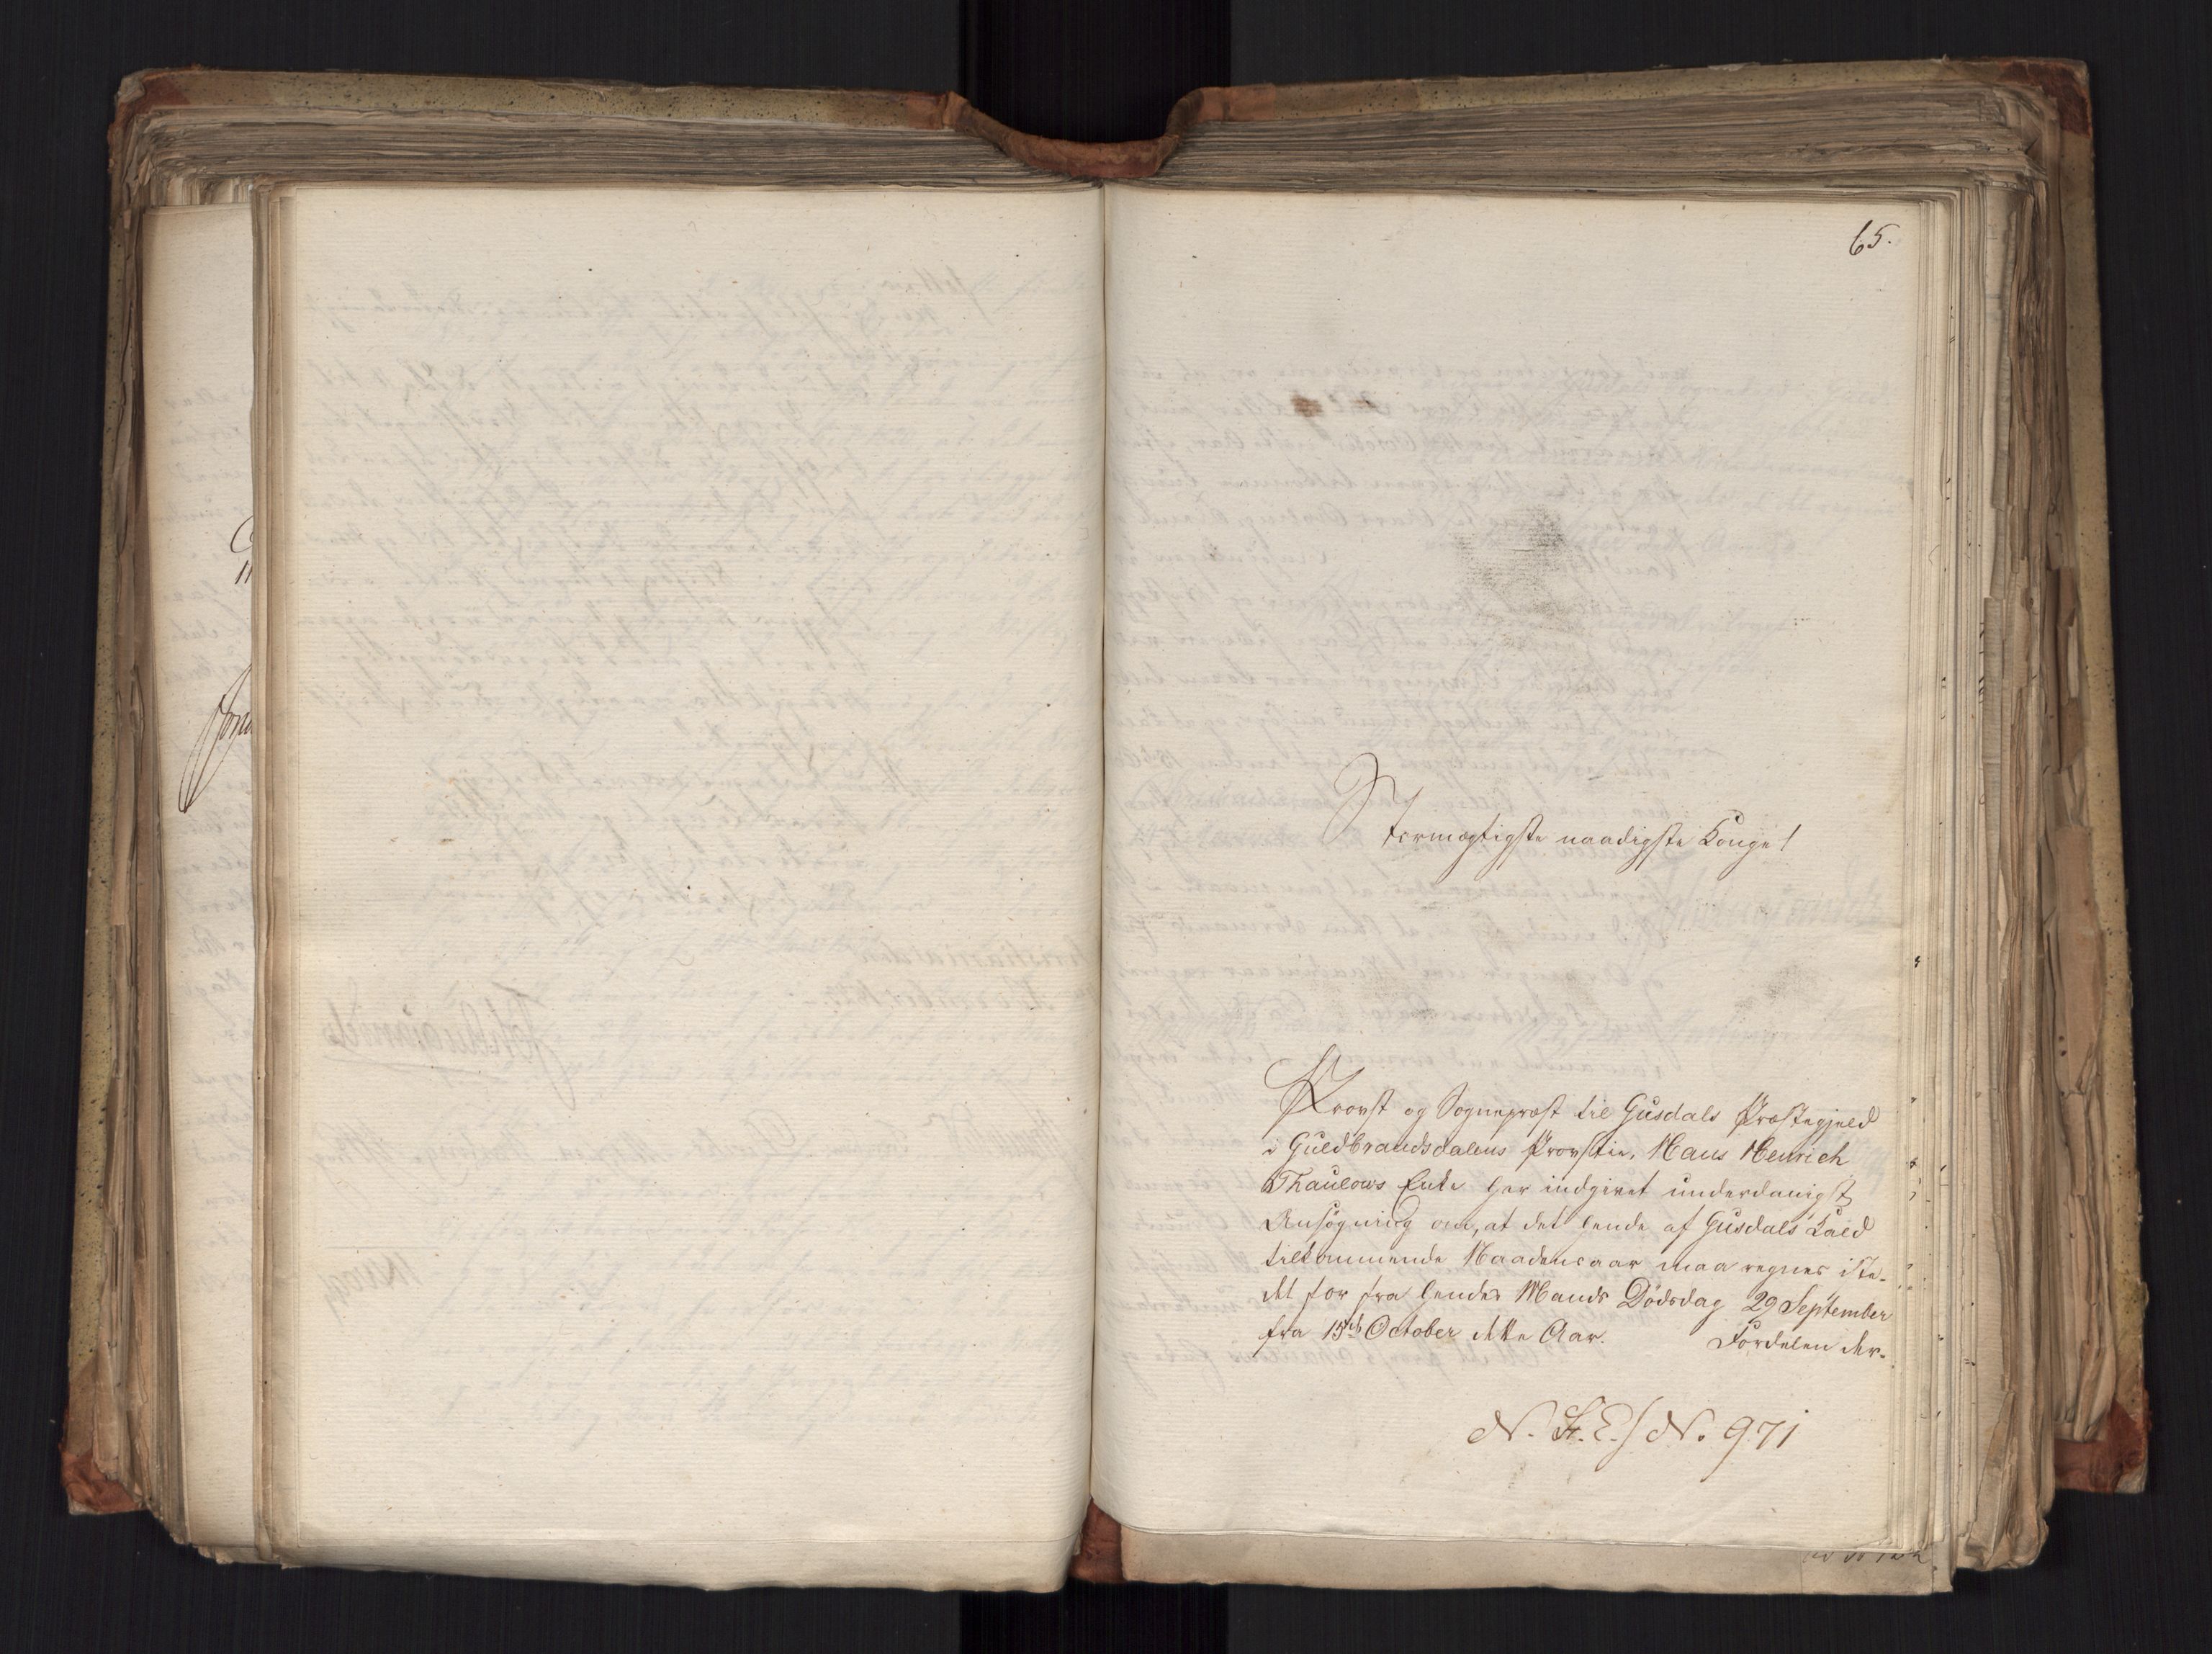 65.
Stormægtigste naadigste Konge!
Provst og Sognepræst til Gusdals Præstegjeld
i Guldbrandsdalens Provstie, Hans Henrich
Thaulows Enke har indgivet underdanigst
Ansøgning om, at det hende af Gusdals Kald
tilkommende Naadensaar maa regnes iste-
det for fra hendes Mands Dödsdag 29 September
fra 15de October dette Aar. Fordelen der-
N. 971